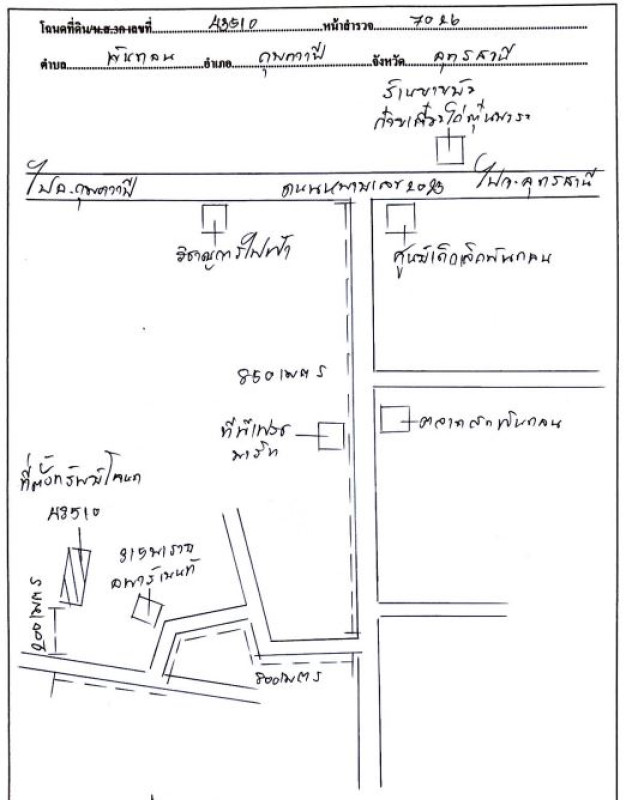 โฉนดที่ดิน/น.ส.3ก เลขที่ 43510 หน้าสำรวจ 7026
ตำบล พันดอน อำเภอ กุมภวาปี จังหวัด อุดรธานี
ร้านขายบัว
ก๋วยเตี๋ยวไก่ตุ๋นมาระ
ไป อ.กุมภวาปี ถนนหมายเลข 2023 ไป จ.อุดรธานี
ไฟฟ้า
ศูนย์เด็กเล็กพันดอน
850 เมตร
ตลาดสดพันดอน
ที่ตั้งทรัพย์โฉนด
43510
อพาร์เมนท์
200 เมตร
800 เมตร